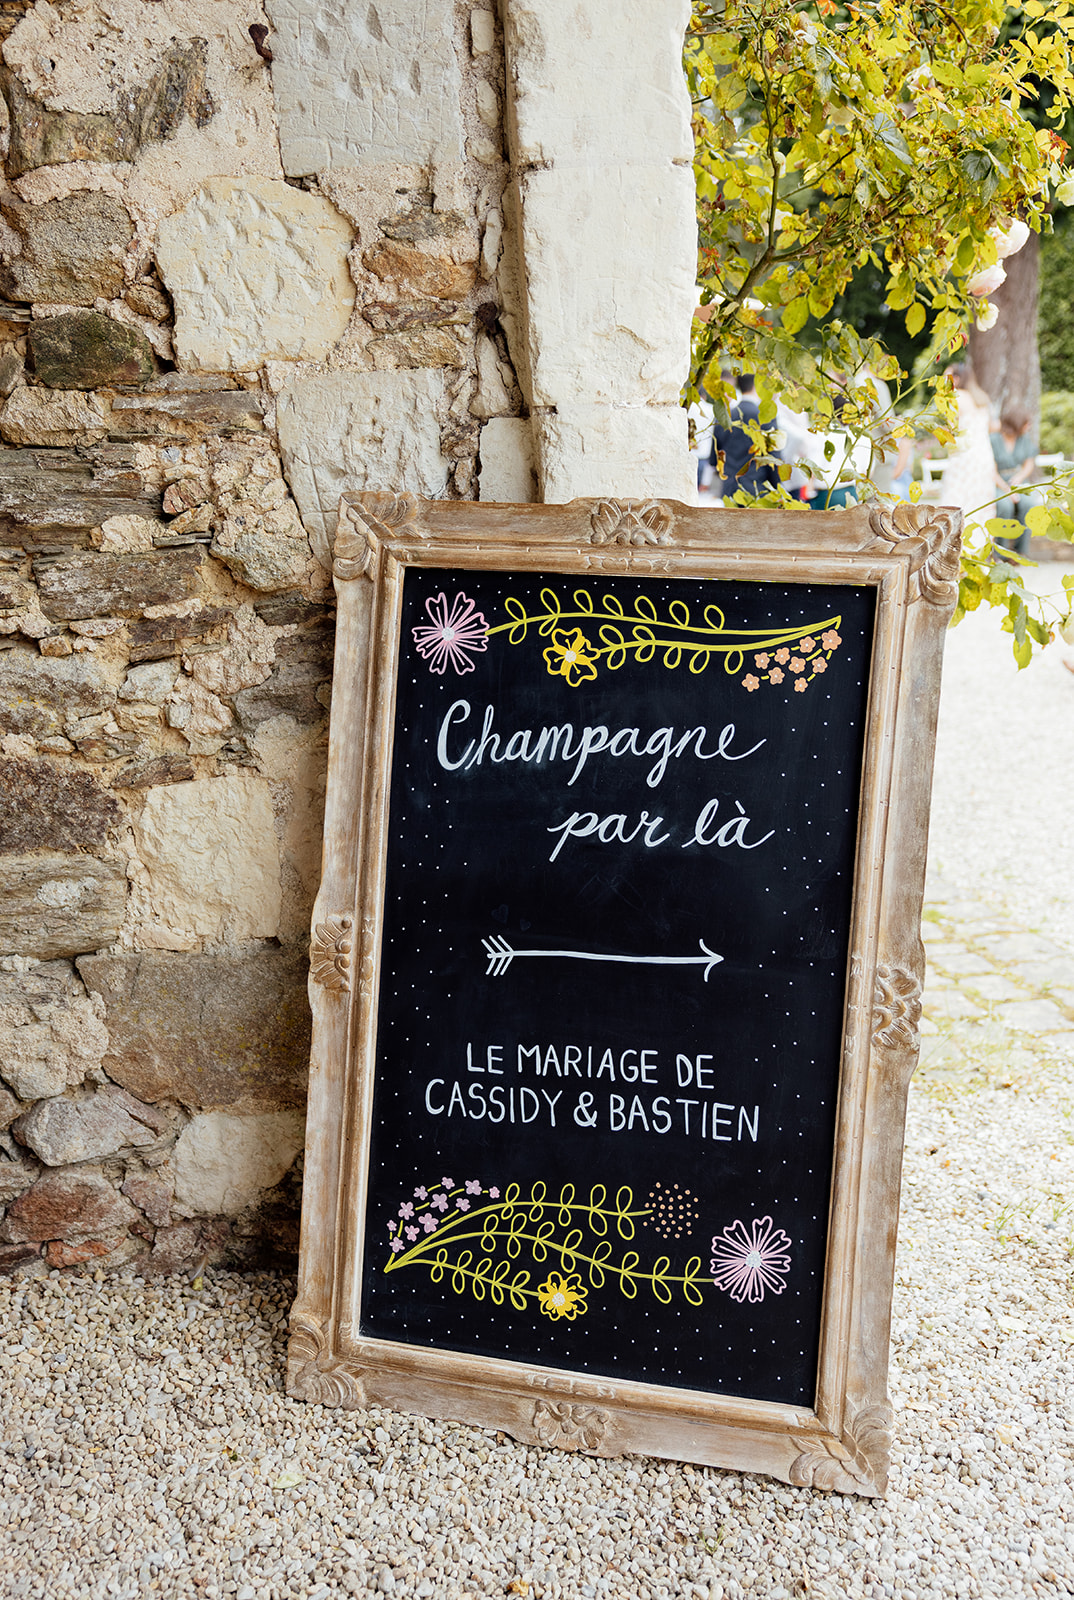 Champagne
par là
LE MARIAGE DE
CASSIDY & BASTIEN